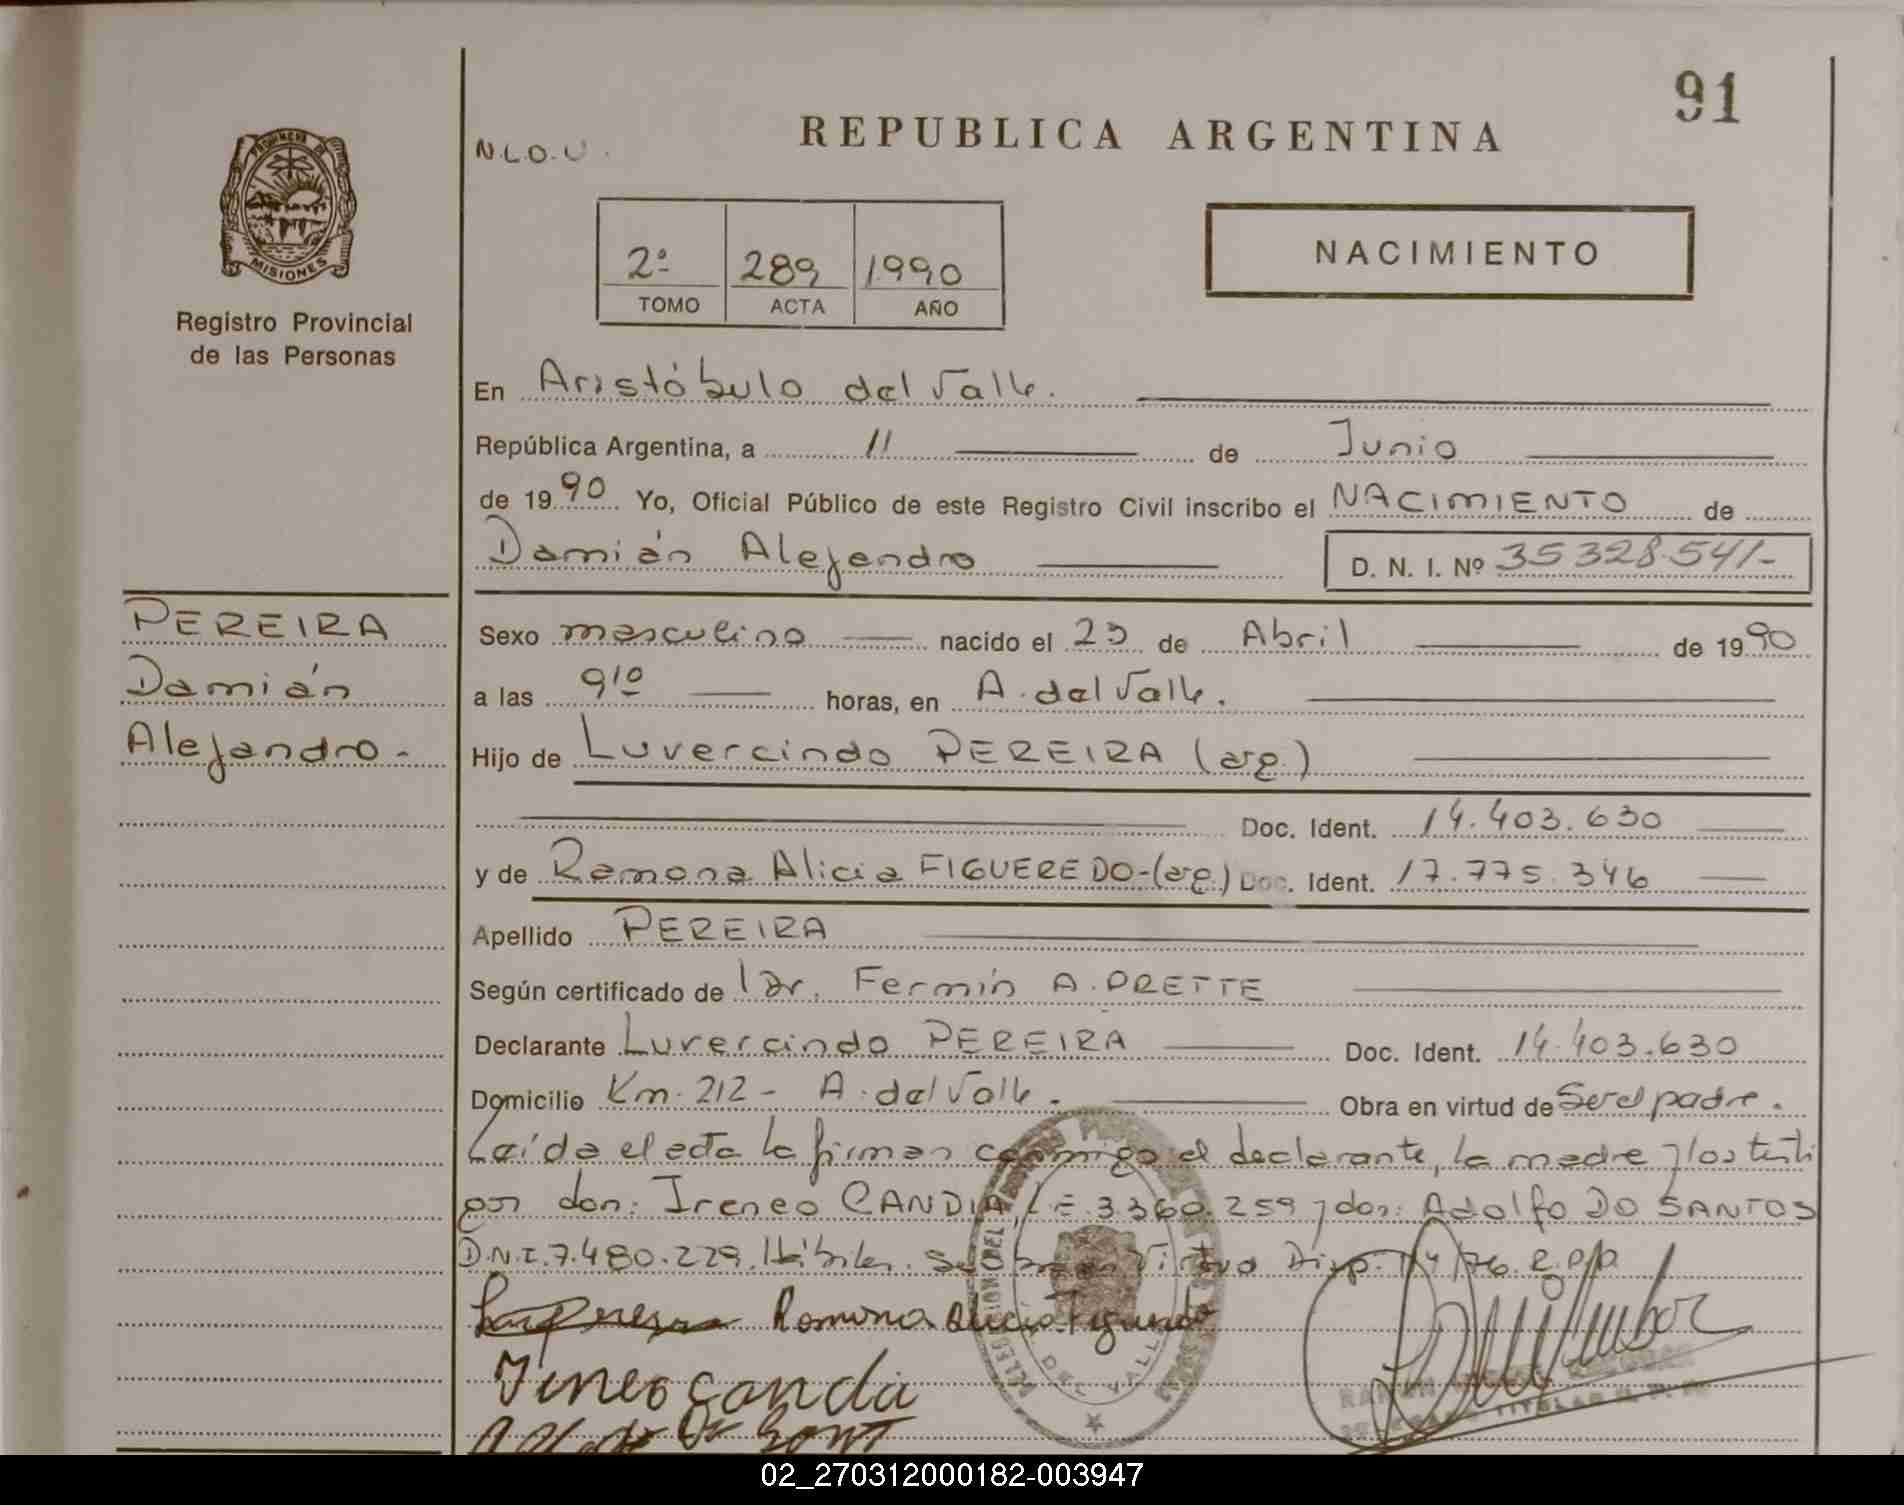 91
REPUBLICA ARGENTINA
N.L.O.U.
PROVINCIA DE
MISIONES
Registro Provincial
de las Personas
2º 289 1990
TOMO ACTA AÑO
NACIMIENTO
En Aristóbulo del Valle.
República Argentina, a 11 de Junio
de 1990 Yo, Oficial Público de este Registro Civil inscribo el NACIMIENTO de
Damián Alejandro D. N. I. Nº 35328.541-
PEREIRA
Damián
Alejandro-
Sexo masculino nacido el 23 de Abril de 1990
a las 9¹⁰ horas, en A. del Valle.
Hijo de Luvercindo PEREIRA (arg.)
Doc. Ident. 14.403.630
y de Ramona Alicia FIGUEREDO-(arg.) Doc. Ident. 17.775.346
Apellido PEREIRA
Según certificado de Dr. Fermín A. PRETTE
Declarante Luvercindo PEREIRA Doc. Ident. 14.403.630
Domicilio Km. 212 - A. del Valle. Obra en virtud de Ser el padre.
Leída el acta la firman conmigo el declarante, la madre y los testi
gos don: Ireneo CANDIA, L.E. 3.360.259 y don: Adolfo DO SANTOS
D.N.I. 7.480.229. Hábiles. Disp. /76. R.P.P.
Ramona Alicia Figueredo
Ireneo Candia
DEL VALLE
TITULAR
02_270312000182-003947